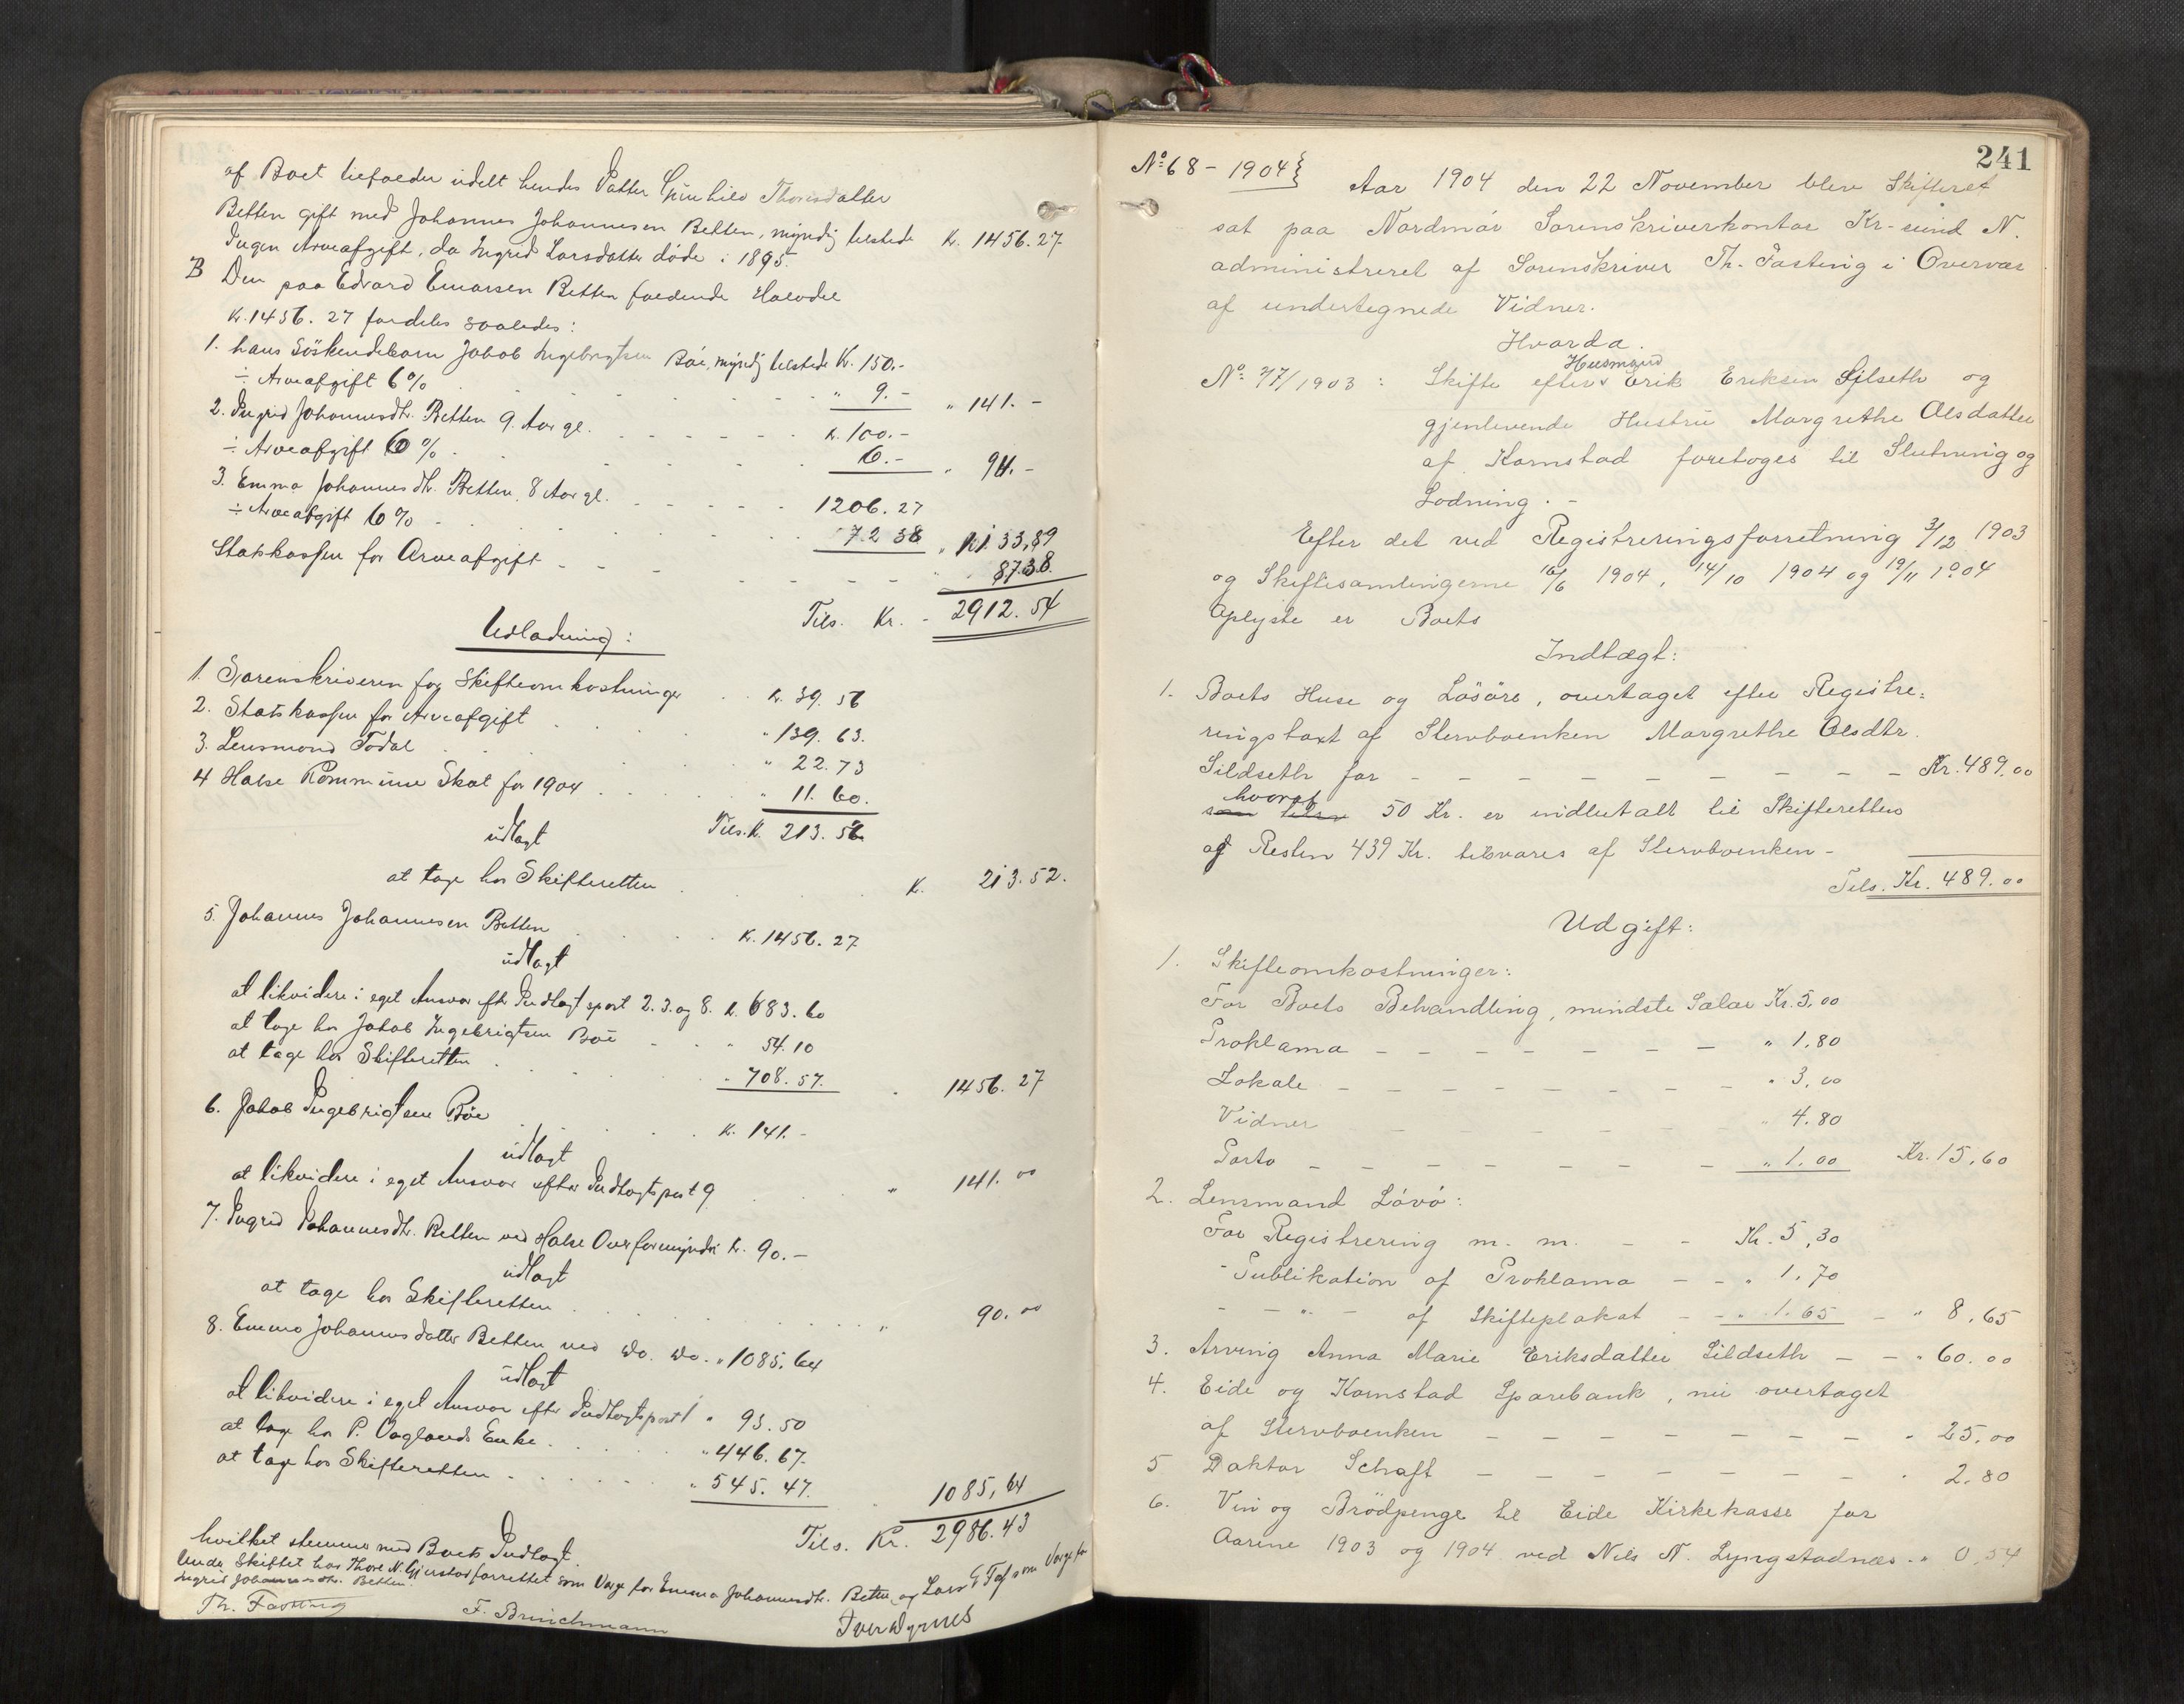 af Boet tilfalder udelt hendes Datter Gunhild Thoresdatter
Betten gift med Johannes Johannesen Betten, myndig tilstede Kr. 1456.27
Ingen Arveafgift, da Ingrid Larsdatter døde i 1895.
B Den paa Edvard Einarsen Betten faldende Halvdel
Kr. 1456.27 fordeles saaledes:
1. hans Söskendebarn Jakob Ingebrigtsen Böe, myndig tilstede Kr. 150.-
÷ Arveafgift 6% " 9.- " 141.-
2. Ingrid Johannesdtr. Betten 9 Aar gl. K. 100.-
÷ Arveafgift 6% 6.- " 94.-
3. Emma Johannesdtr. Betten, 8 Aar gl. 1206.27
÷ Arveafgift 6% 72 38 " 1133,89
Statskassen for Arveafgift 87.38.
Tils. Kr. 2912.54
Udlodning:
1. Sorenskriveren for Skifteomkostninger K. 39.56
2. Statskassen for Arveafgift " 139.63.
3. Lensmand Todal " 22.73
4 Halse Kommune Skat for 1904 " 11.60.
Tils. K. 213.52
udlagt
at tage hos Skifteretten K. 213.52.
5. Johannes Johannesen Betten K. 1456.27
udlagt
at likvidere i eget Ansvar eftr Indtægtspost 2. 3. og 8. K. 683.60
at tage hos Jakob Ingebrigtsen Böe " 54.10
at tage hos Skifteretten " 708.57. " 1456.27
6. Jakob Ingebrigtsen Böe K. 141.-
udlagt
at likvidere i eget Ansvar efter Indtægtspost 9 " 141.00
7. Ingrid Johannesdtr. Betten ved Halse Overformynderi K. 90.-
udlagt
at tage hos Skifteretten " 90.00
8. Emma Johannesdatter Betten ved do. do. " 1085.64
udlagt
at likvidere i eget Ansvar eftr Indtægtspost 1 " 93.50
at tage hos P. Vaglands Enke " 446.67.
at tage hos Skifteretten " 545.47. 1085,64
Tils. Kr. 2986.43
hvilket stemmer med Boets Indtægt.
Under Skiftet har Thore N. Gjerstad forrettet som Verge for Emma Johannesdtr. Betten og Lars Verge for
Ingrid Johannesdtr. Betten.
Th. Fasting F. Brinchmann
241
No 68 - 1904}
Aar 1904 den 22 November blev Skifteret
sat paa Nordmør Sorenskriverkontor Kr-sund N.
administreret af Sorenskriver Th. Fasting i Overvær
af undertegnede Vidner.
Hvorda.
No 77/1903: Skifte efter Husmand Erik Eriksen Sjlseth og
gjenlevende Hustru Margrethe Olsdatter
af Kornstad foretoges til Slutning og
Lodning. -
Efter det ved Registreringsforretning 3/12 1903
og Skiftesamlingerne 16/6 1904, 14/10 1904 og 19/11 1904
Oplyste er Boets
Indtægt:
1. Boets Huse og Lösöre, overtaget efter Registre-
ringstaxt af Stervboenken Margrethe Olsdtr.
Sildseth for - - - - - - - Kr. 489,00
hvoraf 50 Kr. er indbetalt til Skifteretten
og Resten 439 Kr. tilsvares af Stervboenken -
Tils. Kr. 489.00
Udgift:
1. Skifteomkostninger:
For Boets Behandling, mindste Salær Kr. 5,00
Proklama - - - - - - " 1.80
Lokale - - - - - - " 3,00
Vidner - - - - - " 4.80
Porto - - - - - - " 1.00 Kr. 15,60
2. Lensmand Lövö:
For Registrering m. m. - - Kr. 5,30
- Publikation af Proklama - - " 1,70
- - " - af Skifteplakat - - " 1.65 - " 8,65
3. Arving Anna Marie Eriksdatter Sildseth - - " 60.00
4. Eide og Kornstad Sparebank, nu overtaget
af Stervboenken - - - - - - - " 25,00
5 Doktor Schaft - - - - - - - " 2.80
6. Vin og Brödpenge til Eide Kirkekasse for
Aarene 1903 og 1904 ved Nils N. Lyngstadnæs - " 0,54